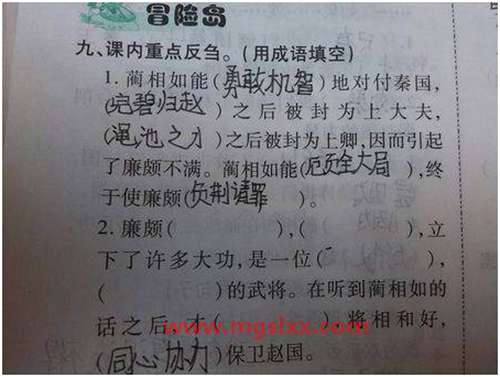 冒险岛
九、课内重点反刍。(用成语填空)
1. 蔺相如能(勇敢机智)地对付秦国,
(完碧归赵)之后被封为上大夫,
(渑池之才)之后被封为上卿,因而引起
了廉颇不满。蔺相如能(顾全大局),终
于使廉颇(负荆请罪)。
2. 廉颇( ),( ),立
下了许多大功,是一位( ),
( )的武将。在听到蔺相如的
话之后,才( ),将相和好,
www.mgslxx.com
(同心协力)保卫赵国。